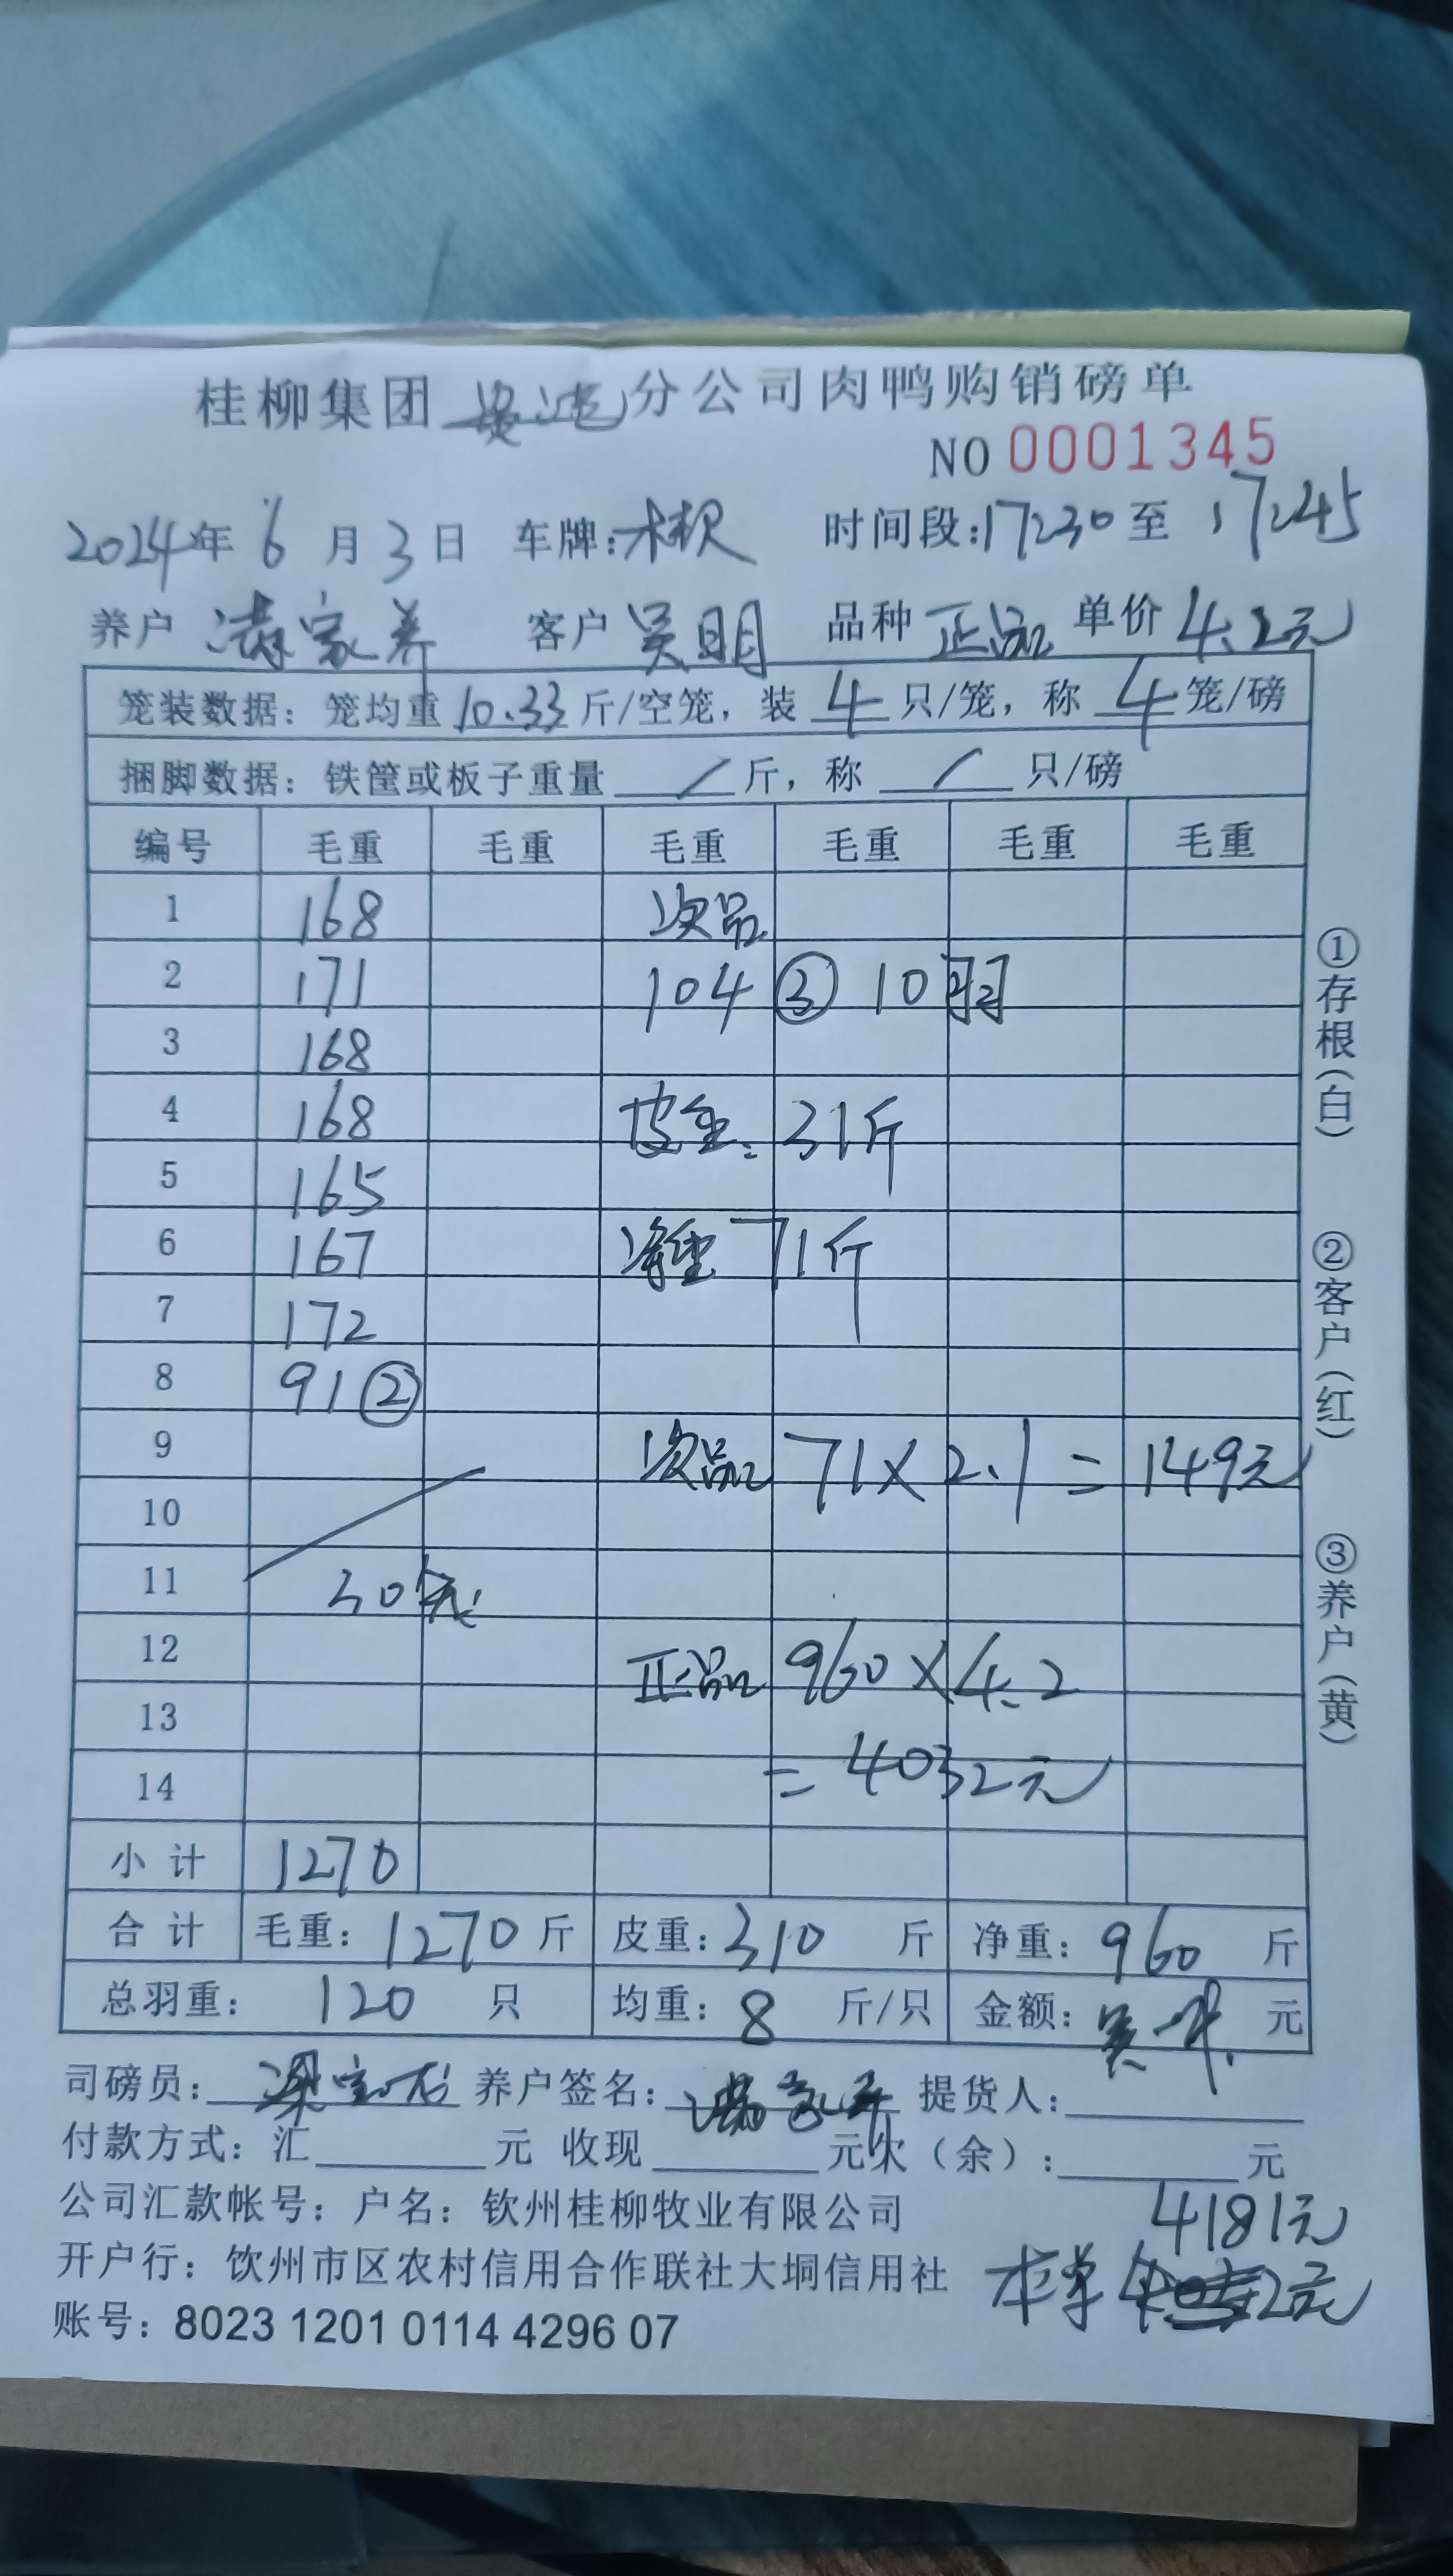 桂柳集团 分公司肉鸭购销磅单
NO 0001345
2024年 6 月 3 日 车牌: 时间段:17:30 至 17:45
养户 家养 客户 吴明 品种 正品 单价 4.2元
笼装数据: 笼均重 10.33 斤/空笼, 装 4 只/笼, 称 4 笼/磅
捆脚数据: 铁筐或板子重量 / 斤, 称 / 只/磅
编号 毛重 毛重 毛重 毛重 毛重 毛重
1 168 次品
2 171 104 ③ 10羽
3 168
4 168 皮重: 31斤
5 165
6 167 净重 71斤
7 172
8 91②
9 次品 71×2.1=149元
10
11 30笼
12 正品 960×4.2
13
14 =4032元
小计 1270
合计 毛重: 1270 斤 皮重: 310 斤 净重: 960 斤
总羽重: 120 只 均重: 8 斤/只 金额: 元
司磅员: 养户签名: 提货人:
付款方式: 汇 元 收现 元 欠(余): 元
4181元
公司汇款帐号: 户名: 钦州桂柳牧业有限公司
开户行: 钦州市区农村信用合作联社大垌信用社
账号: 8023 1201 0114 4296 07
①存根(白)
②客户(红)
③养户(黄)